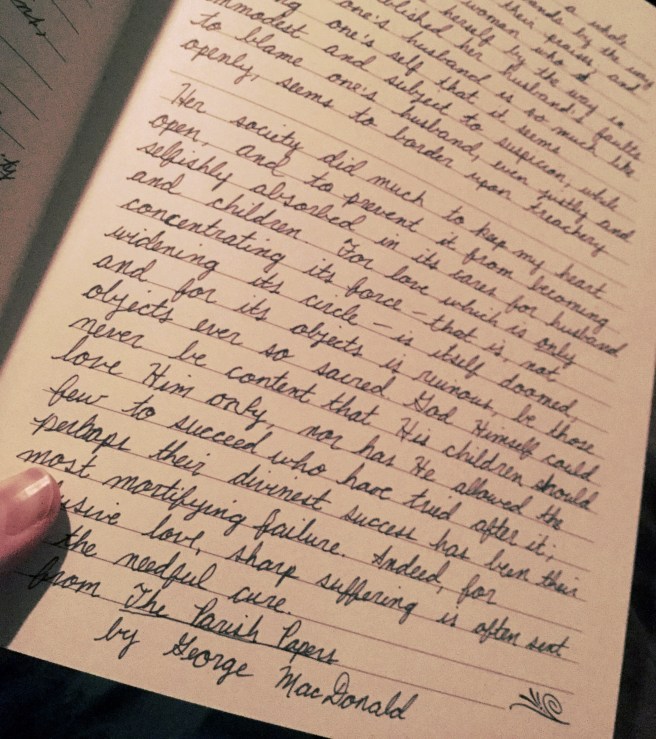 a whole
made by the way
their praises, and
woman who
herself by the way in
established her husband's faults
one's husband is so much like
ing one's self that it seems
immodest and subject to suspicion, while
to blame one's husband, even justly and
openly, seems to border upon treachery
Her society did much to keep my heart
open, and to prevent it from becoming
selfishly absorbed in its cares for husband
and children. For love which is only
concentrating its force - that is, not
widening its circle - is itself doomed,
and for its objects is ruinous, be those
objects ever so sacred. God Himself could
never be content that His children should
love Him only, nor has He allowed the
few to succeed who have tried after it:
perhaps their divinest success has been their
most mortifying failure. Indeed, for
usive love, sharp suffering is often sent
the needful cure.
from The Parish Papers
by George MacDonald